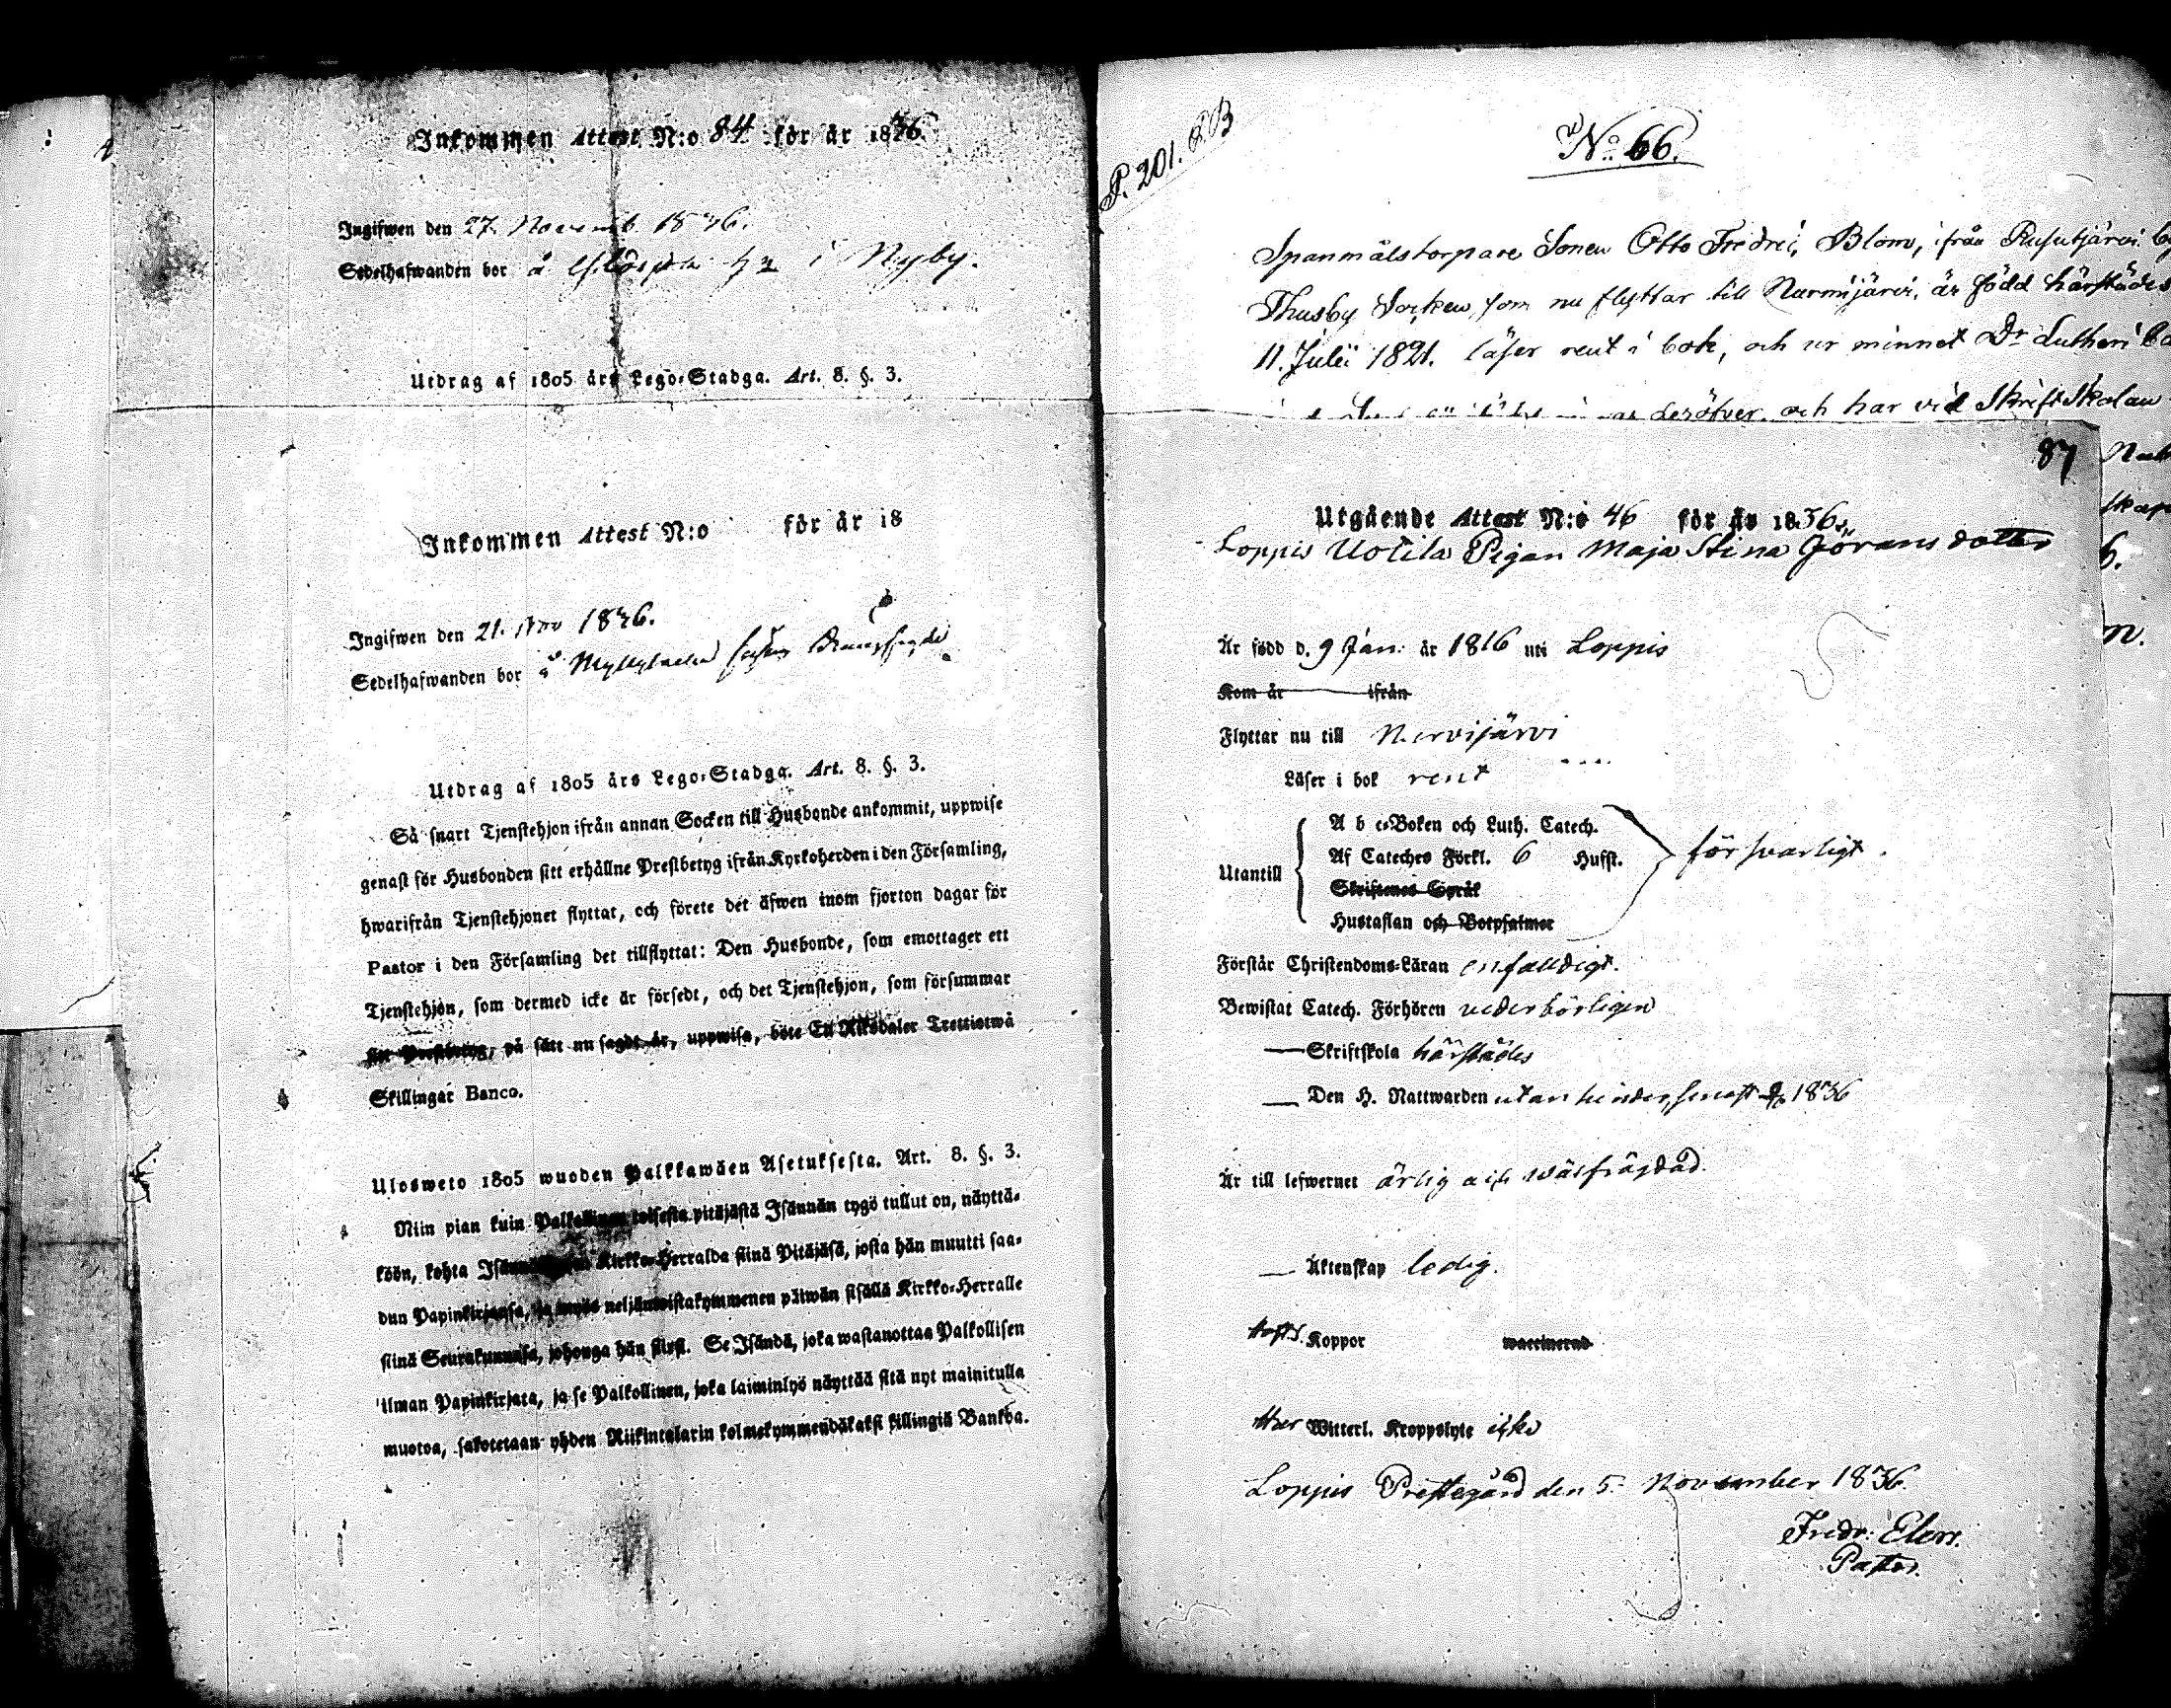 Inkommen Attest N:o 84 för år 1836
Ingifwen den 27. Novemb 1836.
Sedelhafwanden bor å i Nyby.
Utdrag af 1805 års Lego-Stadga. Art. 8. §. 3.
Inkommen Attest N:o för år 18
Ingifwen den 21. Nov 1836.
Sedelhafwanden bor å
Utdrag af 1805 års Lego-Stadga. Art. 8. §. 3.
Så snart Tjenstehjon ifrån annan Socken till Husbonde ankommit, uppwise
genast för Husbonden sitt erhållne Prestbetyg ifrån Kyrkoherden i den Församling,
hwarifrån Tjenstehjonet flyttat, och förete det äfwen inom fjorton dagar för
Pastor i den Församling det tillflyttat: Den Husbonde, som emottager ett
Tjenstehjon, som dermed icke är försedt, och det Tjenstehjon, som försummar
sitt Prestbetyg, på sätt nu sagdt är, uppwisa, böte En Riksdaler Trettiotwå
Skillingar Banco.
Ulosweto 1805 wuoden Palkkawäen Asetuksesta. Art. 8. §. 3.
Niin pian kuin Palkollinen toisesta pitäjästä Isännän tygö tullut on, näyttä-
köön, kohta Kirkko-Herralda siinä Pitäjäsä, josta hän muutti saa-
dun Papinkirjansa, ja myös neljäntoistakymmenen päiwän sisällä Kirkko-Herralle
siinä Seurakunnasa, johonga hän siirsi. Se Isändä, joka wastanottaa Palkollisen
ilman Papinkirjata, ja se Palkollinen, joka laiminlyö näyttää sitä nyt mainitulla
muotoa, sakotetaan yhden Riikintalarin kolmekymmendäkaksi killingiä Bankoa.
P. 201. RB
No 66.
Spanmålstorpare Sonen Otto Fredric Blom, ifrån Rusutjärvi
Thusby Socken, som nu flyttar till Nurmijärvi, är född härstädes
11. Julii 1821. läser rent i bok, och ur minnet Dr Lutheri
och har vid Skriftskolan
87
Utgående Attest N:o 46 för år 1836.
Loppis Uotila Pigan Maja Stina Göransdotter
Är född d. 9 Jan: år 1816 uti Loppis
Kom år ifrån
Flyttar nu till Nurmijärvi
Läser i bok rent
Utantill
A b c-Boken och Luth. Catech.
Af Cateches Förkl. 6 Hufst.
Skriftenes Språk
Hustaflan och Botpsalmer
försvarligt.
Förstår Christendoms-Läran enfalldigt.
Bewistat Catech. Förhören vederbörligen
— Skriftskola härstädes
— Den H. Nattwarden utan hinder, senast 1836
Är till lefwernet ärlig och wälfrägdad.
— Äktenskap ledig.
Haft Koppor waccinerad
Har Witterl. Kroppslyte icke
Loppis Prestegård den 5. November 1836.
Fredr: Elers.
Pastor.